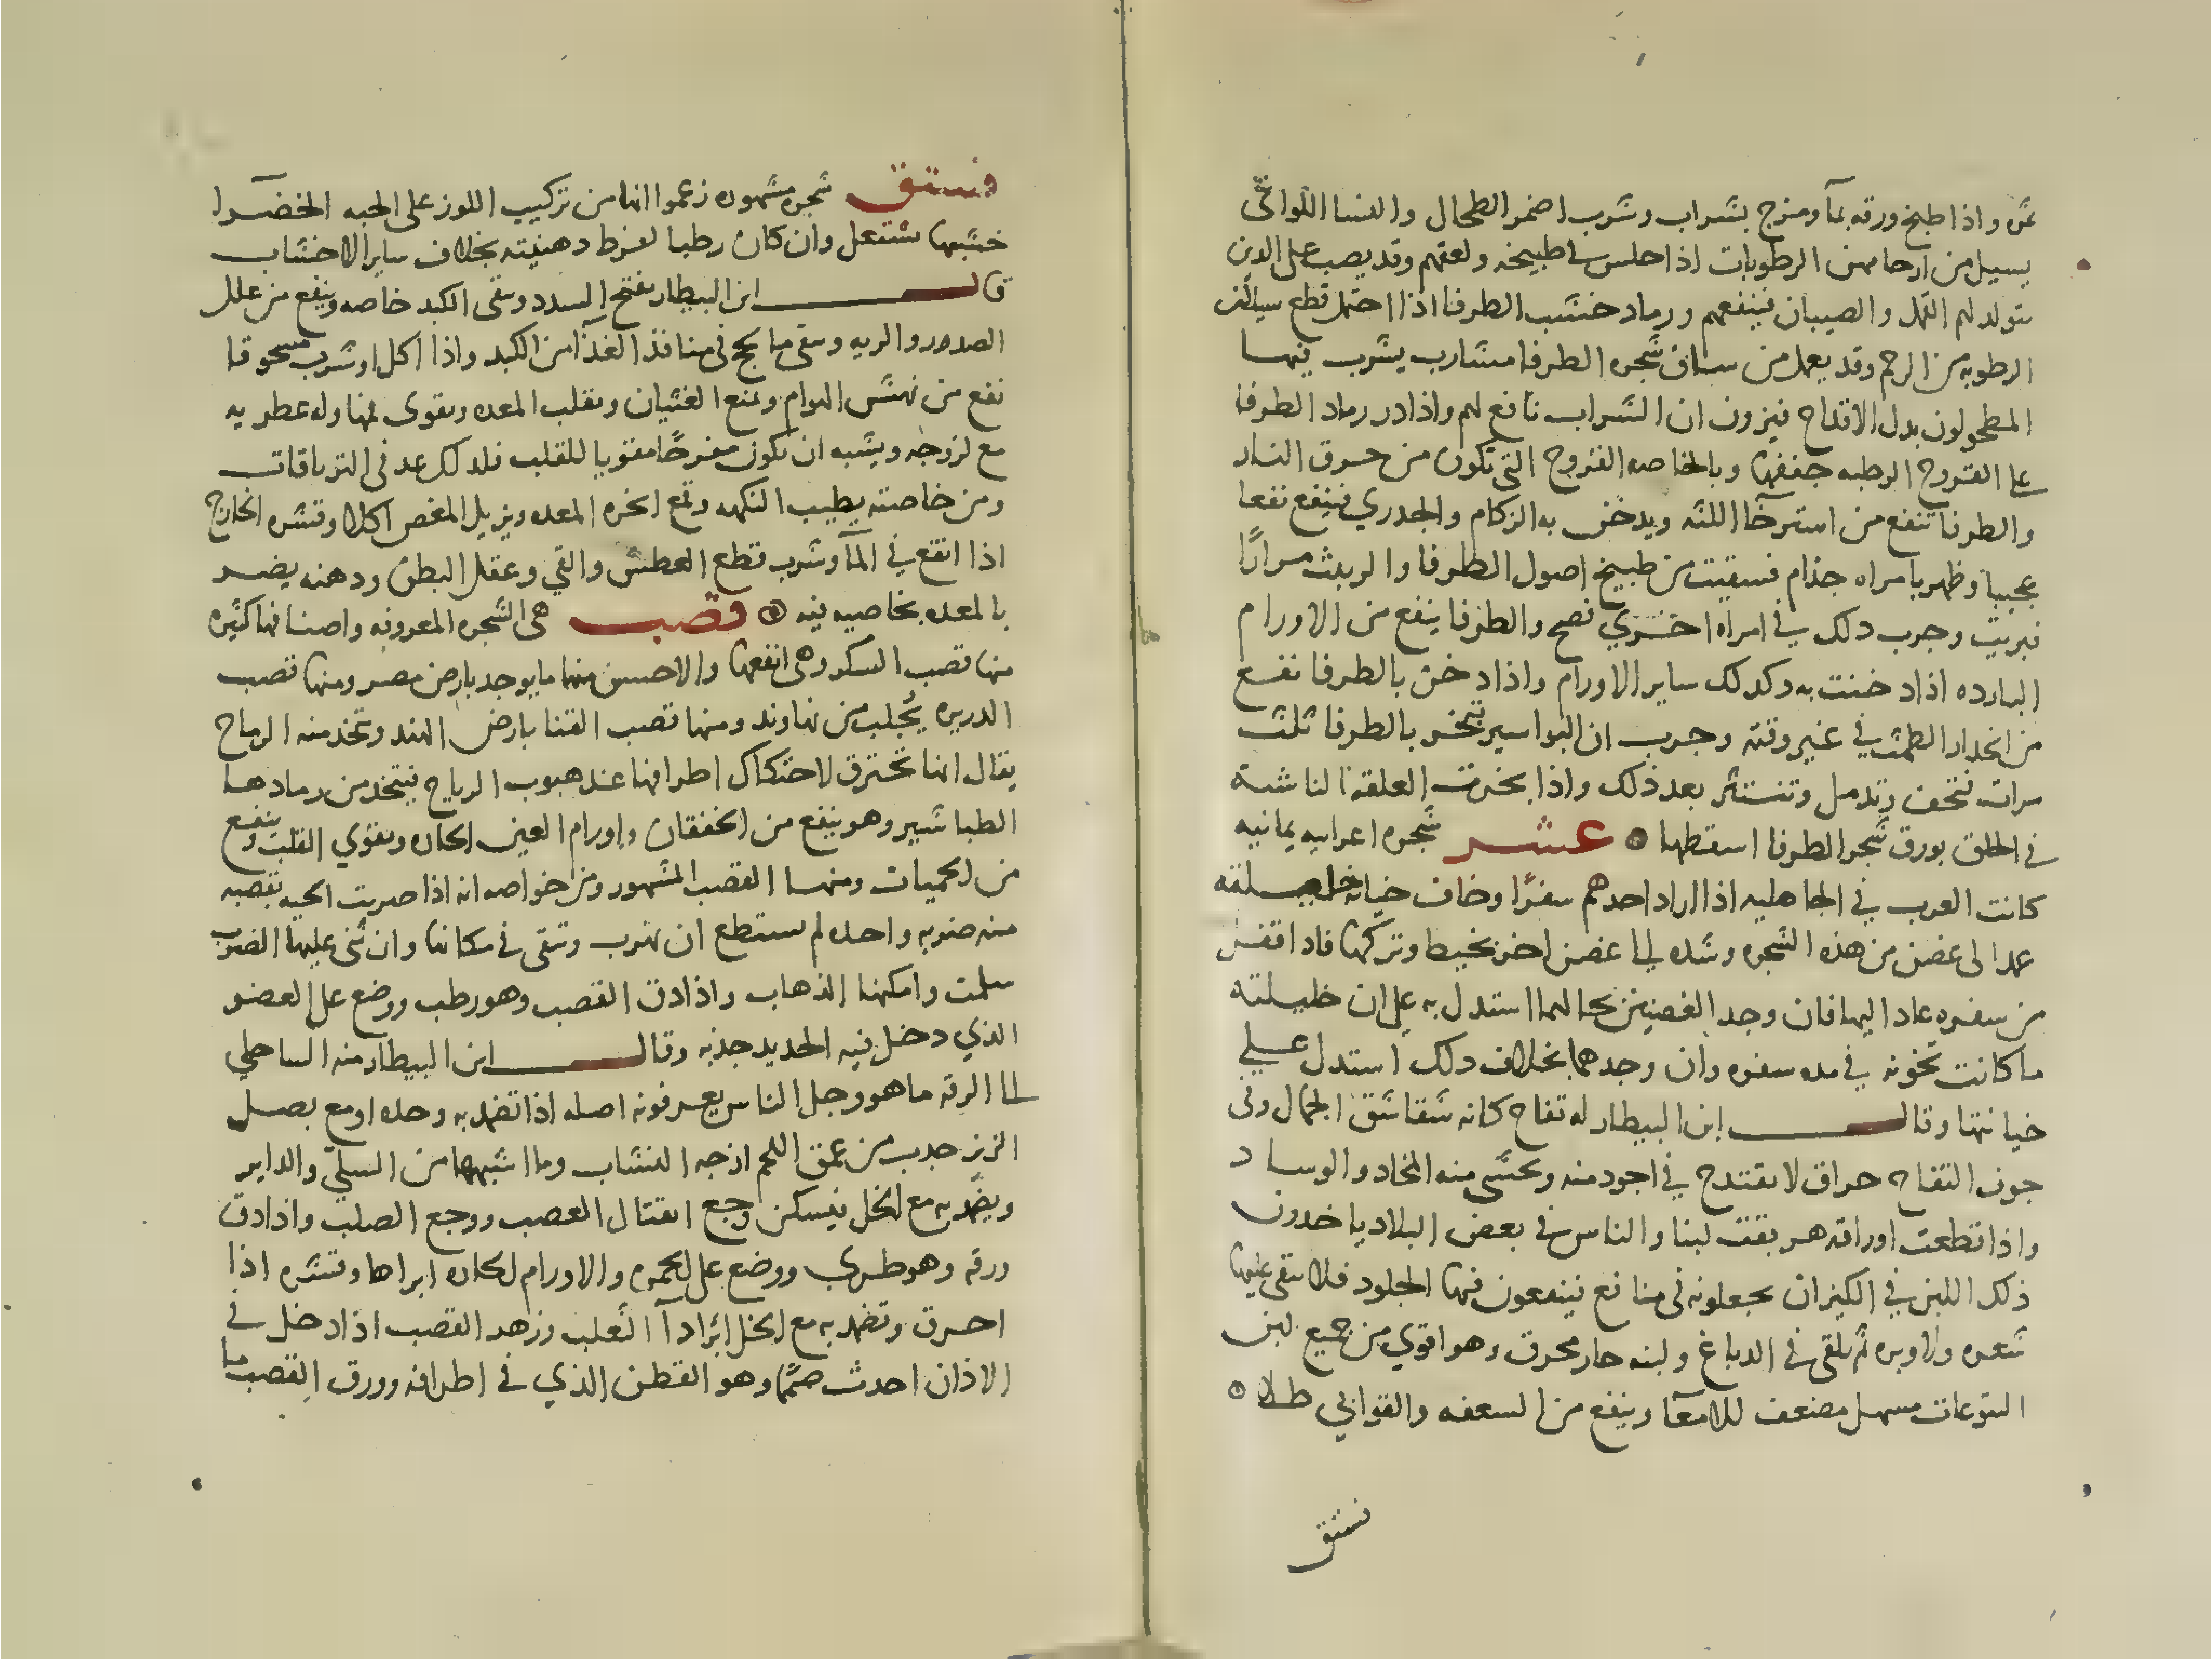 ثمره واذا طبخ ورقه بمآ ومزج بشراب وشرب اضمر الطحال والنسا اللواتي
يسيل من ارحامهن الرطوبات اذا جلسن في طبيخه ولعقهم وقد يصب على الدين
يتولد لهم القمل والصيبان فينفعهم ورماد خشب الطرفا اذا احتمل قطع سيلان
الرطوبه من الرحم وقد يعمل من ساق شجره الطرفا مشارب يشرب فيها
المطحولون بدل الاقداح فيزون ان الشراب نافع لهم واذا در رماد الطرفا
على القروح الرطبه جففها وبالخاصه القروح التي تكون من حرق النار
والطرفا تنفع من استرخآ اللثه ويدخن به الزكام والجدري فينفع نفعا
عجيبا وظهر بامراه جذام فسقيت من طبيخ اصول الطرفا والزبيب مرارًا
فبريت وجرب دلك في امراه اخري فصح والطرفا ينفع من الاورام
البارده اذا دخنت به وكدلك ساير الاورام واذا دخن بالطرفا نفع
من انحدار الطمث في غير وقته وجرب ان البواسير تبخر بالطرفا ثلث
مرات فتجف وتدمل وتنتثر بعد ذلك واذا بخرت العلقه الناشبه
في الحلق بورق شجر الطرفا اسقطها عشر شجره اعرابيه يمانيه
كانت العرب في الجاهليه اذا اراد احدهم سفرًا وخاف خيانه حليلته
عمد الى غصن من هذه الشجره وشده الى غصن اخر بخيط وتركها فاذا قفل
من سفره عاد اليها فان وجد الغصنين بحالهما استدل به على ان حليلته
ما كانت تخونه في مده سفره وان وجدهما بخلاف دلك استدل على
خيانتها وقال ابن البيطار له تفاح كانه شقاشق الجمال وفي
جوف التفاح حراق لا يقتدح في اجود منه ويحشى منه المخاد والوساد
واذا قطعت اوراقه هريقت لبنا والناس في بعض البلاد ياخدون
ذلك اللبن في الكيزان يجعلونه في مناقع فينقعون فيها الجلود فلا يبقى عليها
شعره ولا وبره ثم يلقى في الدباغ ولبنه حار محرق وهو اقوي من جميع لبن
اليتوعات مسهل مضعف للامعآ وينفع من السعفه والقوابي طلا
فستق
فستق شجره مشهوره زعموا انها من تركيب اللوز على الحبه الخضرا
خشبها يشتعل وان كان رطبا لفرط دهنيته بخلاف ساير الاخشاب
قال ابن البيطار يفتح السدد وينقى الكبد خاصه وينفع من علل
الصدور والريه وينقى ما يحج في منافذ الغذآ من الكبد واذا اكل او شرب مسحوقا
نفع من نهش الهوام ويمنع الغثيان وتقلب المعده ويقوى فمها وله عطريه
مع لزوجه ويشبه ان يكون مفرحًا مقويا للقلب فلدلك عد في الترياقات
ومن خاصته يطيب النكهه ويمنع ابخره المعده ويزيل المغص اكلا وقشره الخارج
اذا انقع في المآ وشرب قطع العطش والقي وعقل البطن ودهنه يضر
بالمعده بخاصيه فيه قصب هى الشجره المعروفه واصنافها كثيره
منها قصب السكر وهى انفعها والاحسن منها ما يوجد بارض مصر ومنها قصب
الدريره يجلب من نهاوند ومنها قصب القنا بارض الهند وتتخذ منه الرماح
يقال انها تحترق لاحتكاك اطرافها عند هبوب الرياح فيتخذ من رمادها
الطباشير وهو ينفع من الخفقان واورام العين الحاره ويقوي القلب وينفع
من الحميات ومنها القصب المشهور ومن خواصه انه اذا ضربت الحيه بقصبه
منه ضربه واحده لم تستطع ان تهرب وتبقى في مكانها وان ثنى عليها الضرب
سلمت وامكنها الذهاب واذا دق القصب وهو رطب ووضع على العضو
الذي دخل فيه الحديد جذبه وقال ابن البيطار منه الساحلي
الى الرقه ما هو وجل الناس يعرفونه اصله اذا تضمد به وحده او مع بصل
الزيز جدب من عمق اللحم ازجه النشاب وما اشبهها من السلي والداير
ويضمد به مع الخل فيسكن وجع انفتال العصب ووجع الصلب واذا دق
ورقه وهو طري ووضع على الحمره والاورام الحاره ابراها وقشره اذا
احرق وتضمد به مع الخل ابرا دآ الثعلب وزهر القصب اذا دخل في
الاذان احدث صممًا وهو القطن الذي في اطرافه وورق القصب ما